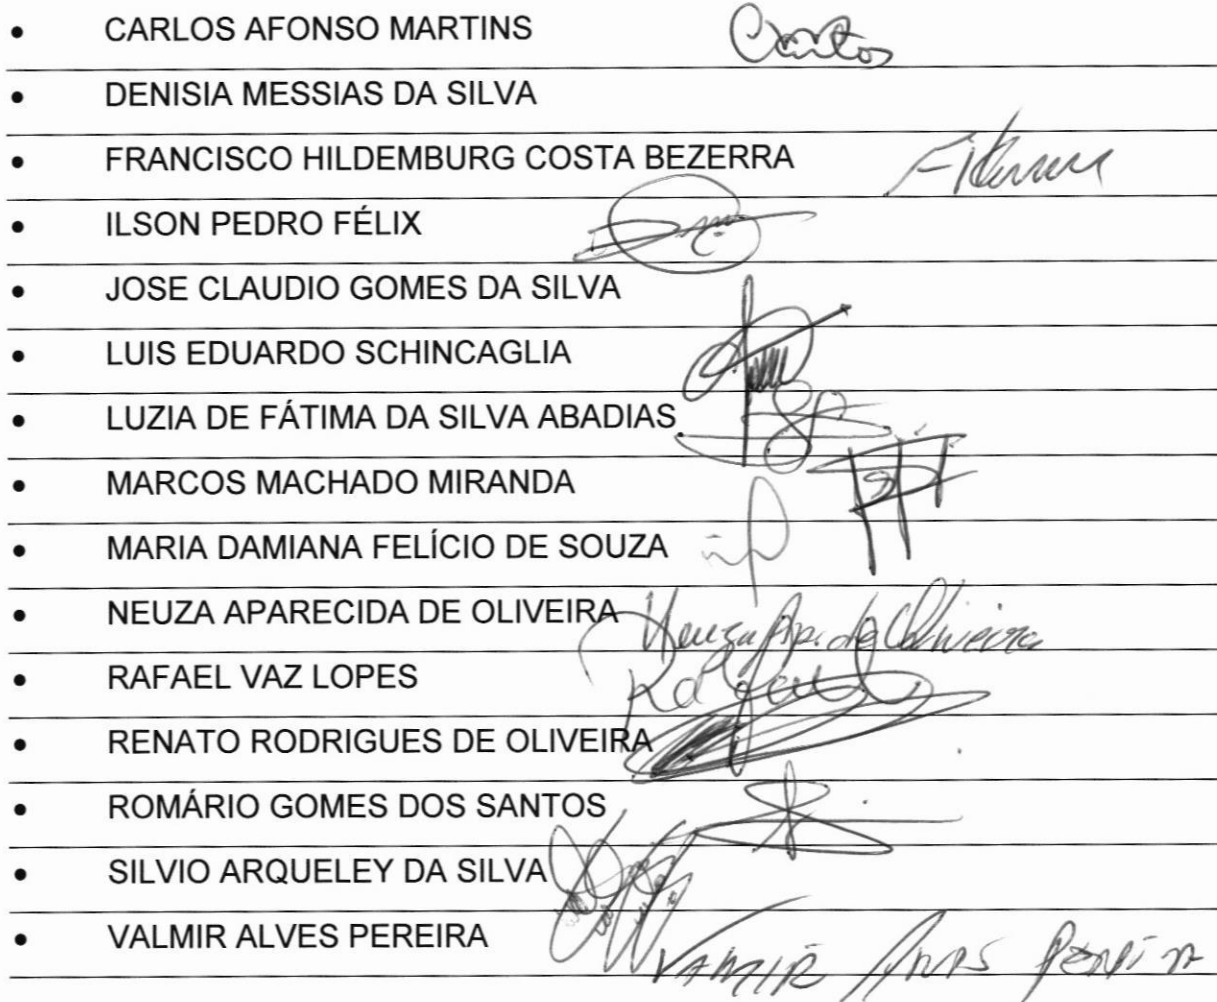 • CARLOS AFONSO MARTINS Carlos
• DENISIA MESSIAS DA SILVA
• FRANCISCO HILDEMBURG COSTA BEZERRA
• ILSON PEDRO FÉLIX
• JOSE CLAUDIO GOMES DA SILVA
• LUIS EDUARDO SCHINCAGLIA
• LUZIA DE FÁTIMA DA SILVA ABADIAS
• MARCOS MACHADO MIRANDA
• MARIA DAMIANA FELÍCIO DE SOUZA
• NEUZA APARECIDA DE OLIVEIRA Neuza Ap. de Oliveira
• RAFAEL VAZ LOPES Rafael
• RENATO RODRIGUES DE OLIVEIRA
• ROMÁRIO GOMES DOS SANTOS
• SILVIO ARQUELEY DA SILVA
• VALMIR ALVES PEREIRA